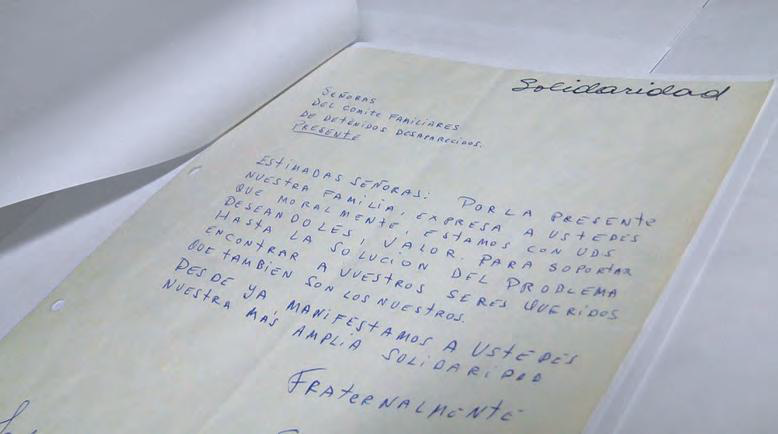 Solidaridad
SEÑORAS
DEL COMITE FAMILIARES
DE DETENIDOS DESAPARECIDOS.
PRESENTE
ESTIMADAS SEÑORAS: POR LA PRESENTE
NUESTRA FAMILIA, EXPRESA A USTEDES
QUE MORALMENTE, ESTAMOS CON UDS
DESEANDOLES, VALOR. PARA SOPORTAR
HASTA LA SOLUCION DEL PROBLEMA
ENCONTRAR A VUESTROS SERES QUERIDOS
QUE TAMBIEN SON LOS NUESTROS.
DESDE YA, MANIFESTAMOS A USTEDES
NUESTRA MAS AMPLIA SOLIDARIDAD
FRATERNALMENTE